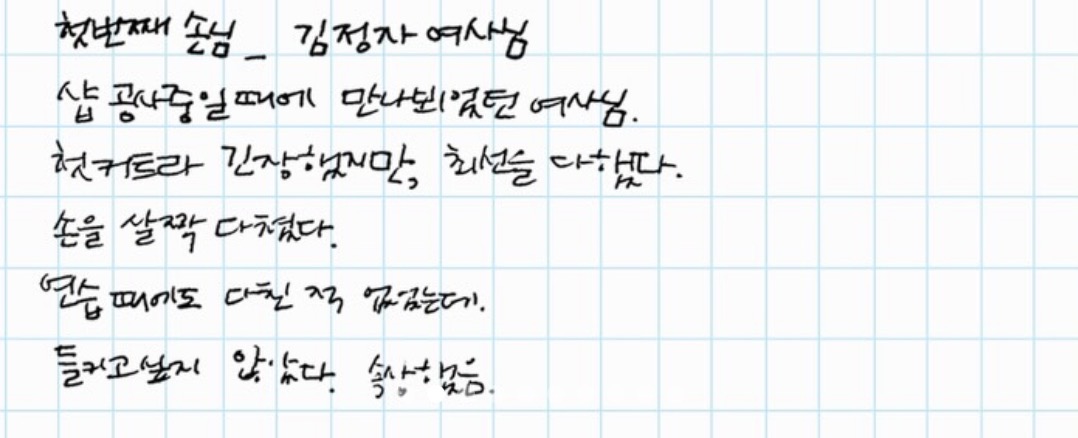 첫번째 손님_ 김정자 여사님
샵 공사중일때에 만나뵈었던 여사님.
첫커트라 긴장했지만, 최선을 다했다.
손을 살짝 다쳤다.
연습때에도 다친 적 없었는데.
들키고싶지 않았다. 속상했음.